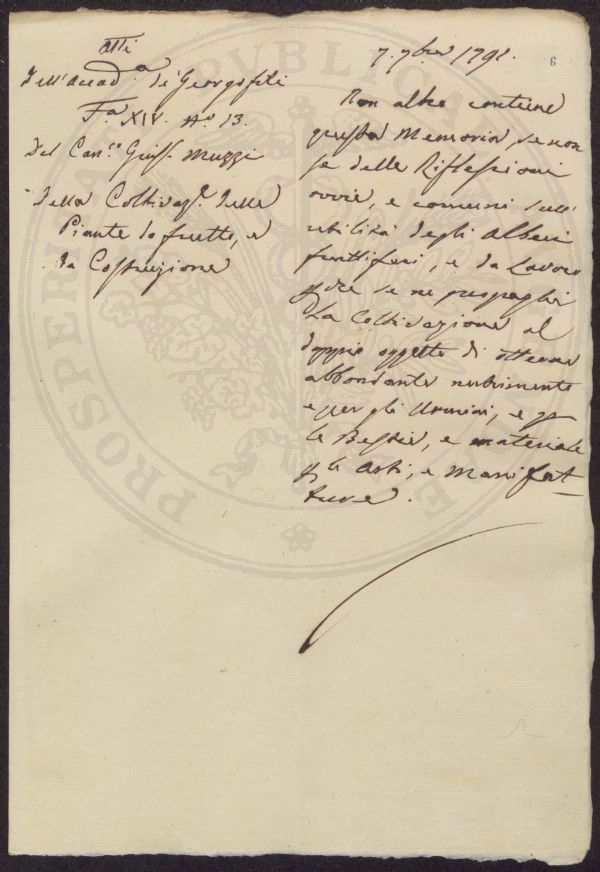 Atti
Dell'Accad.a de' Georgofili
F.a XIV. N.o 13.
Del Can.co Gius. Muzzi
Della Coltivaz.e delle
Piante da frutto, e
da Costruzione
7. 7bre 1791.
6
Non altro contiene
questa Memoria, se non
se delle Riflessioni
ovvie, e comuni sull'
utilità degli Alberi
fruttiferi, e da Lavoro
se ne propaghi
La Coltivazione al
doppio oggetto di ottenere
abbondante nutrimento
e per gli Uomini, e p
le Bestie, e materiale
p le Arti, e Manifat-
ture.
PROSPERITA PUBLICA